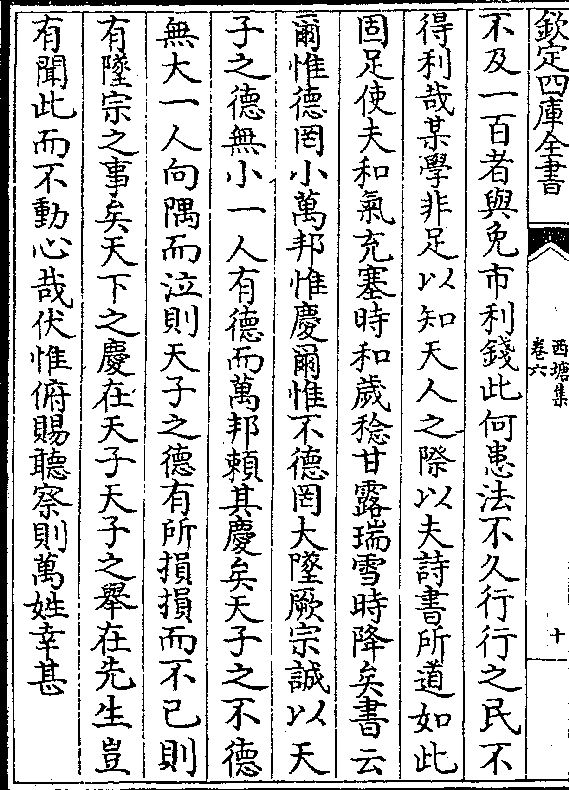 欽定四庫全書
西塘集
卷六
十
不及一百者與免市利錢此何患法不久行行之民不
得利哉某學非足以知天人之際以夫詩書所道如此
固足使夫和氣充塞時和歲稔甘露瑞雪時降矣書云
爾惟德罔小萬邦惟慶爾惟不德罔大墜厥宗誠以天
子之德無小一人有德而萬邦賴其慶矣天子之不德
無大一人向隅而泣則天子之德有所損損而不已則
有墜宗之事矣天下之慶在天子天子之舉在先生豈
有聞此而不動心哉伏惟俯賜聽察則萬姓幸甚